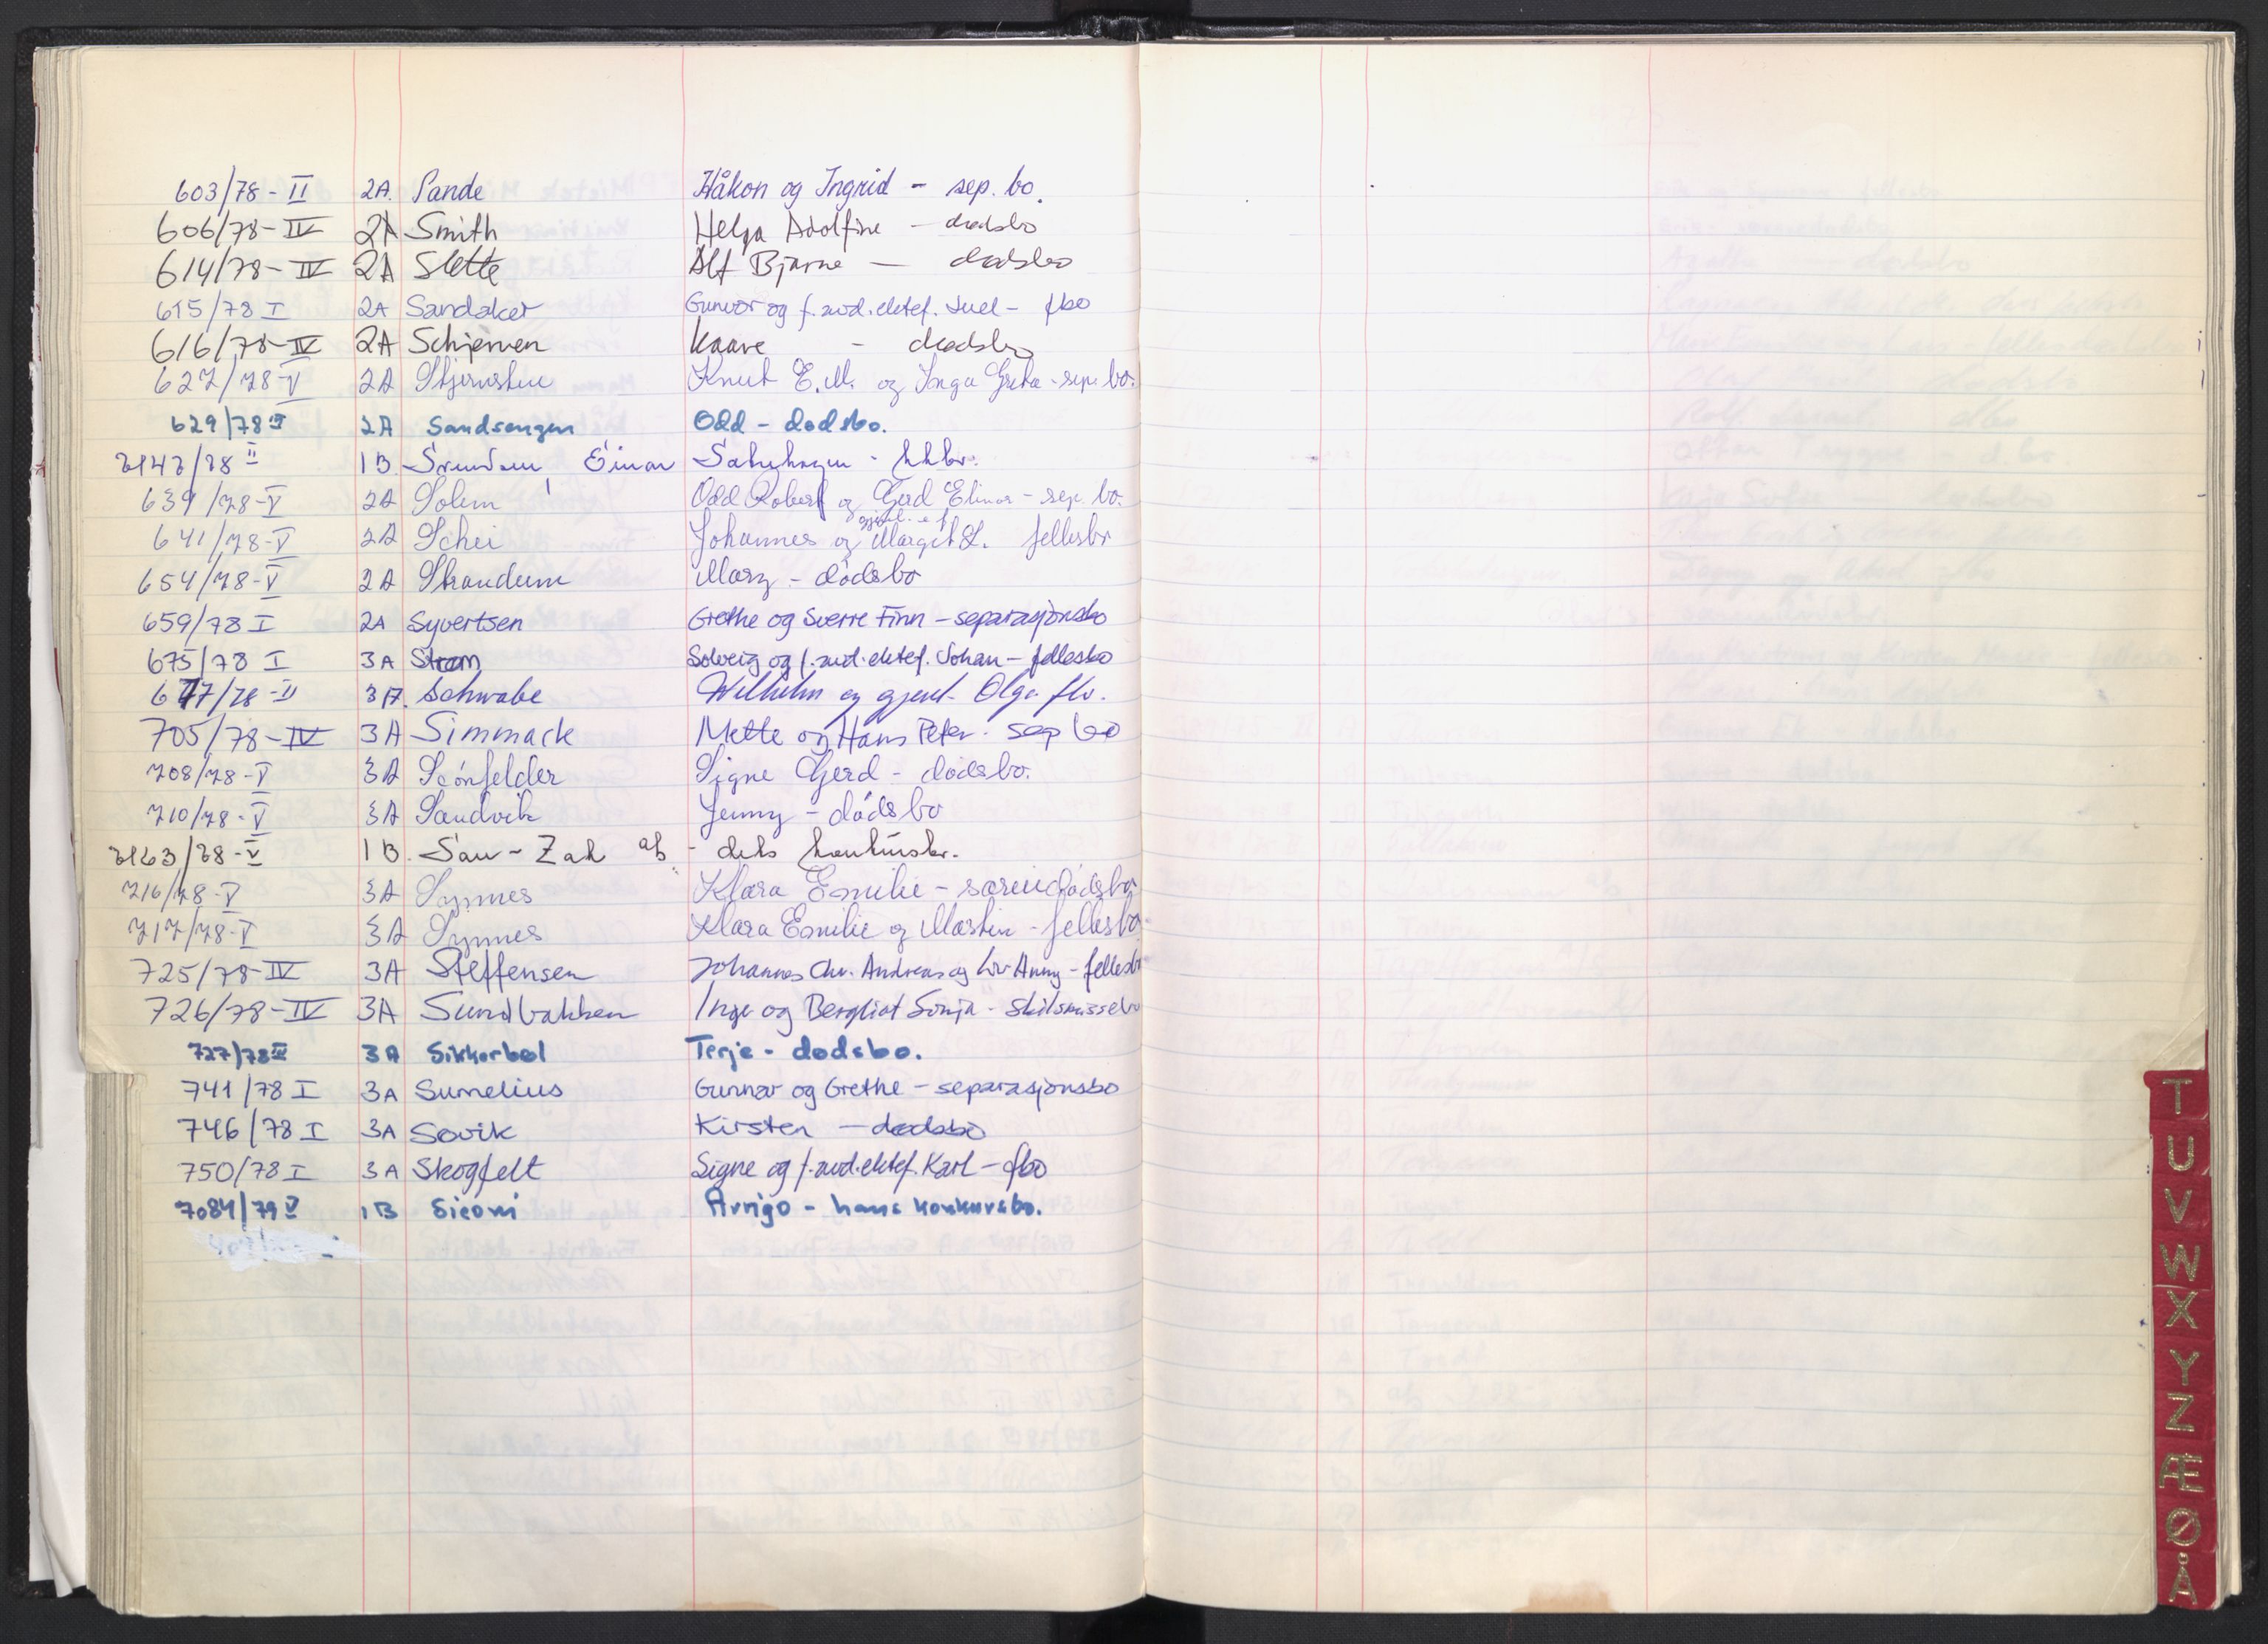 603/78 - II 2A. Sande Håkon og Ingrid - sep. bo.
606/78 - IV 2A Smith Helga Adolfine - dødsbo
614/78 - IV 2A Slette Alf Bjarne - dødsbo
615/78 I 2A Sandaker Gunvor og f. avd. ektef. Juel - fbo
616/78 - IV 2A Schjerven Kaare - dødsbo
627/78 - V 2A Knut E.M. og Inga Greta - sep. bo.
629/78 2A Sandsengen Odd - dødsbo.
/78 II 1B. Einar - kkbo.
639/78 - V 2A Solem Odd Robert og Gerd Elinor - sep. bo.
641/78 - V 2A Schei Johannes og gjenl. e f Margit L. fellesbo
654/78 - V 2A Strandum Mary - dødsbo
659/78 I 2A Syvertsen Grethe og Sverre Finn - separasjonsbo
675/78 I 3A Strøm Solveig og f. avd. ektef. Johan - fellesbo
677/78 - II 3A. Schwabe Wilhelm og gjenl. Olga fbo.
705/78 - IV 3A Simmack Mette og Hans Peter - sep bo
708/78 - V 3A Scönfelder Signe Gerd - dødsbo.
710/78 - V 3A Sandvik Jenny - dødsbo
/78 - V 1B. San - Zak a/s - dets konkursbo.
716/78 - V 3A Synnes Klara Emilie - særeiedødsbo
717/78 - V 3A Synnes Klara Emilie og Martin - fellesbo
725/78 - IV 3A Steffensen Johannes Chr. Andreas og Liv Anny - fellesbo
726/78 - IV 3A Sundbakken Inge og Bergliot Sonja - skilsmissebo
727/78 3A Sikkerbøl Terje - dødsbo.
741/78 I 3A Sumelius Gunnar og Grethe - separasjonsbo
746/78 I 3A Søvik Kirsten - dødsbo
750/78 I 3A Skogfelt Signe og f. avd. ektef. Karl - fbo
7084/79 V 1B Sironi Arrigo - hans konkursbo.
T
U
V
W
X
Y
Z
Æ
Ø
Å